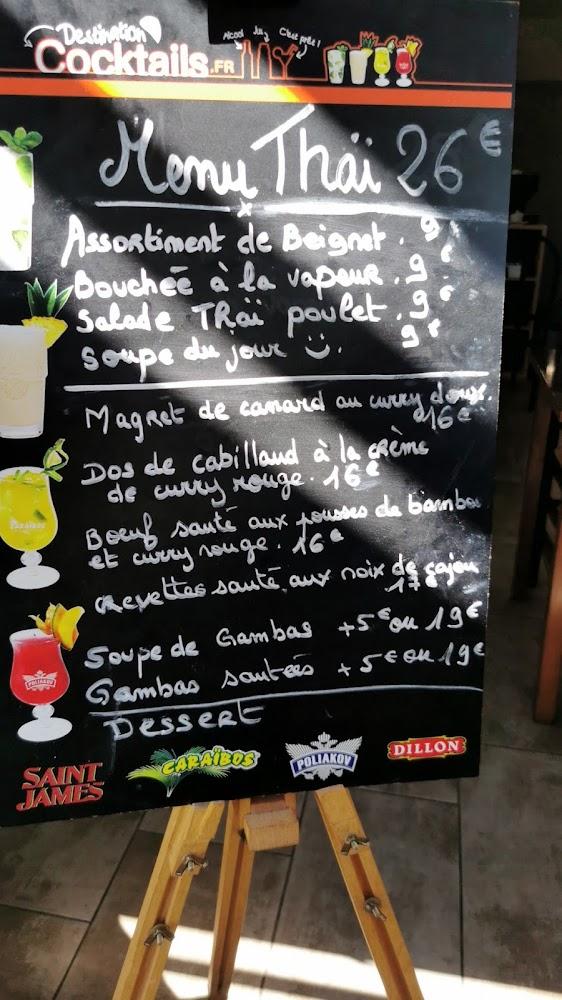 Destination
Cocktails.FR
Alcool Jus C'est prêt !
Menu Thaï 26€
Assortiment de Beignet . 9€
Bouchée à la vapeur . 9€
Salade Thaï poulet . 9€
Soupe du jour :). 9€
Magret de canard au curry doux.
16€
Dos de cabillaud à la crème
de curry rouge. 16€
Boeuf sauté aux pousses de bambou
et curry rouge. 16€
Crevettes sauté aux noix de cajou
17€
Soupe de Gambas +5€ ou 19€
Gambas sautées +5€ ou 19€
Dessert
SAINT
JAMES
CARAÏBOS
POLIAKOV
DILLON
POLIAKOV